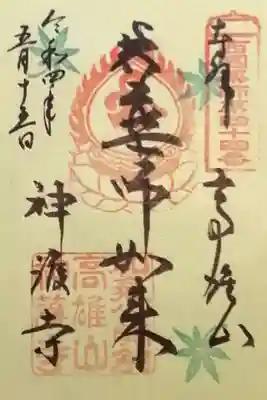 奉拝
高雄山
薬師如来
神護寺
令和四年
五月十五日
高雄山